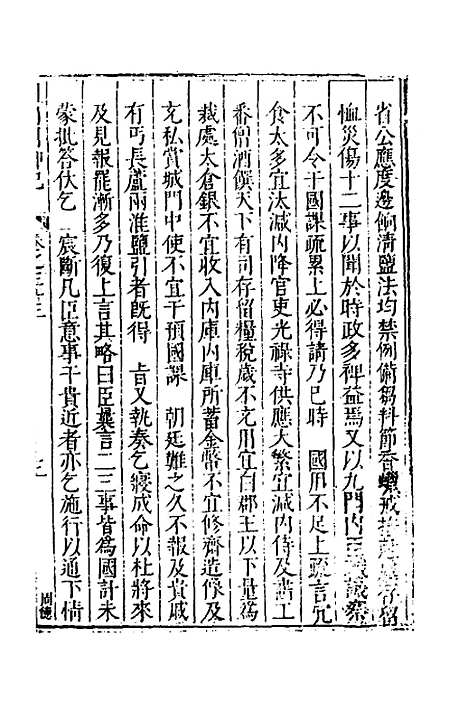 省公應度邊餉清鹽法均禁例備芻料節香蠟戒
恤災傷十二事以聞於時政多裨益焉又以九門內
不可令干國課疏累上必得請乃已時　國用不足上疏言冗
食太多宜汰減內降官吏光祿寺供應大繁宜減內侍及畵工
番僧酒饌天下有司存留糧稅歲不充用宜自郡王以下量為
裁處太倉銀不宜收入內庫內庫所蓄金幣不宜修齋造像及
充私賞城門中使不宜干預國課　朝廷難之久不報及貴戚
有丐長蘆兩淮鹽引者旣得　旨又執奏乞寢成命以杜將來
及見報罷漸多乃復上言其略曰臣曩言二三事皆為國計未
蒙批答伏乞　宸斷凡臣意事干貴近者亦乞施行以通下情
周德